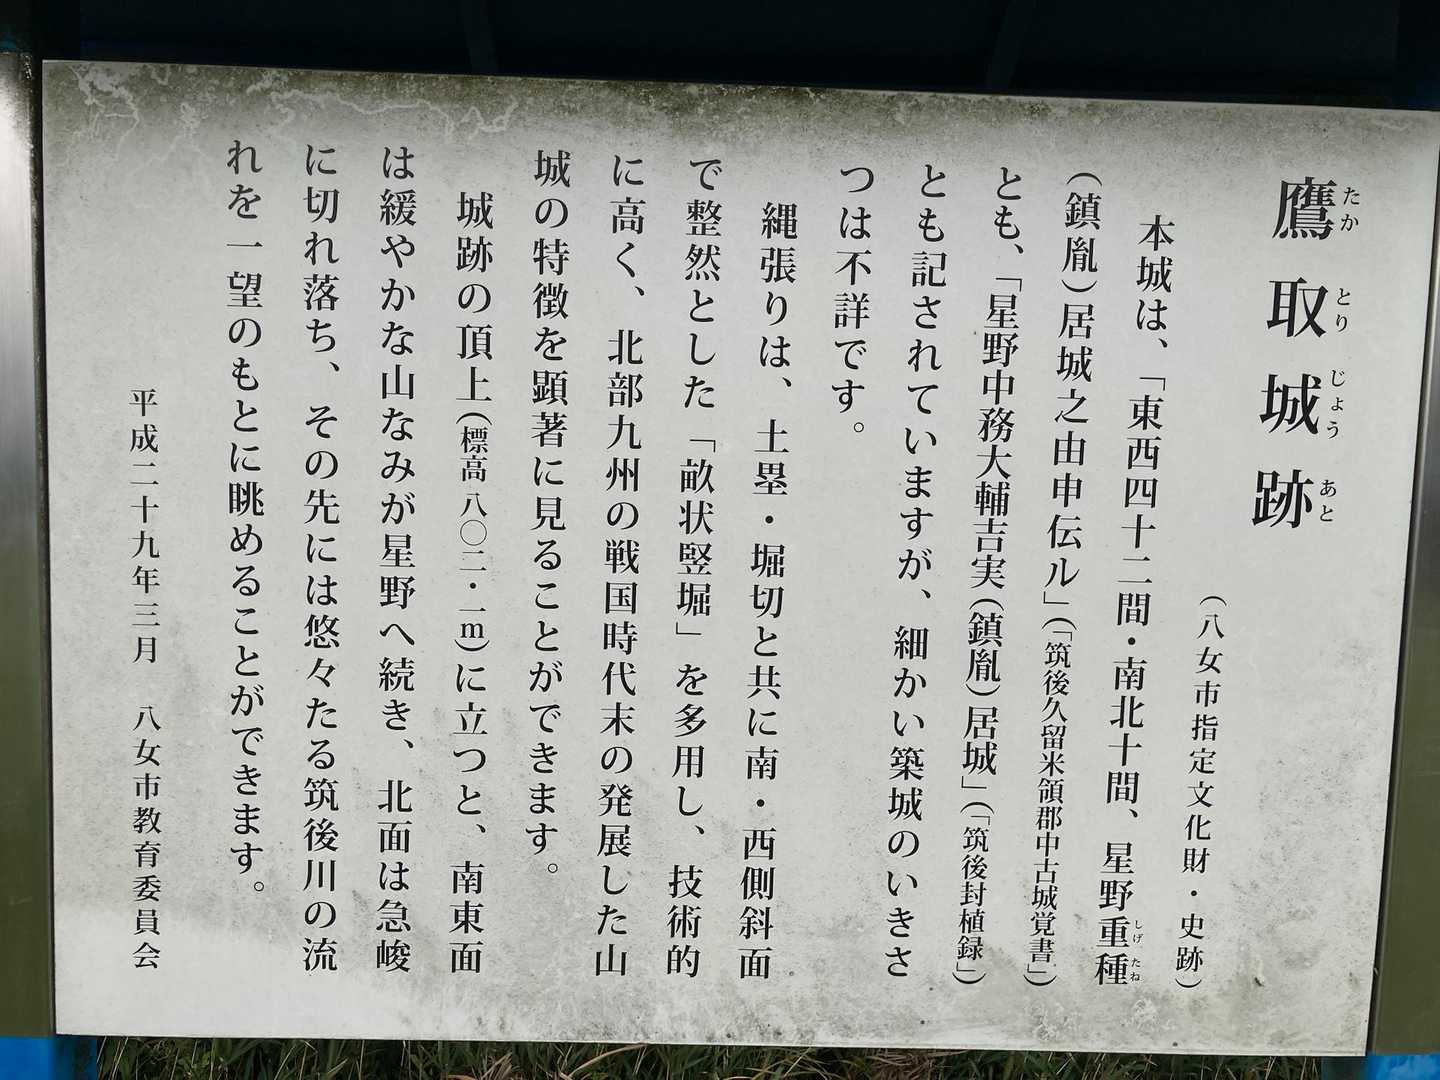 鷹取城跡
たかとりじょうあと
(八女市指定文化財・史跡)
本城は、「東西四十二間・南北十間、星野重種
しげたね
(鎮胤)居城之由申伝ル」(「筑後久留米領郡中古城覚書」)
とも、「星野中務大輔吉実(鎮胤)居城」(「筑後封植録」)
とも記されていますが、細かい築城のいきさ
つは不詳です。
縄張りは、土塁・堀切と共に南・西側斜面
で整然とした「畝状竪堀」を多用し、技術的
に高く、北部九州の戦国時代末の発展した山
城の特徴を顕著に見ることができます。
城跡の頂上(標高八〇二・一m)に立つと、南東面
は緩やかな山なみが星野へ続き、北面は急峻
に切れ落ち、その先には悠々たる筑後川の流
れを一望のもとに眺めることができます。
平成二十九年三月 八女市教育委員会